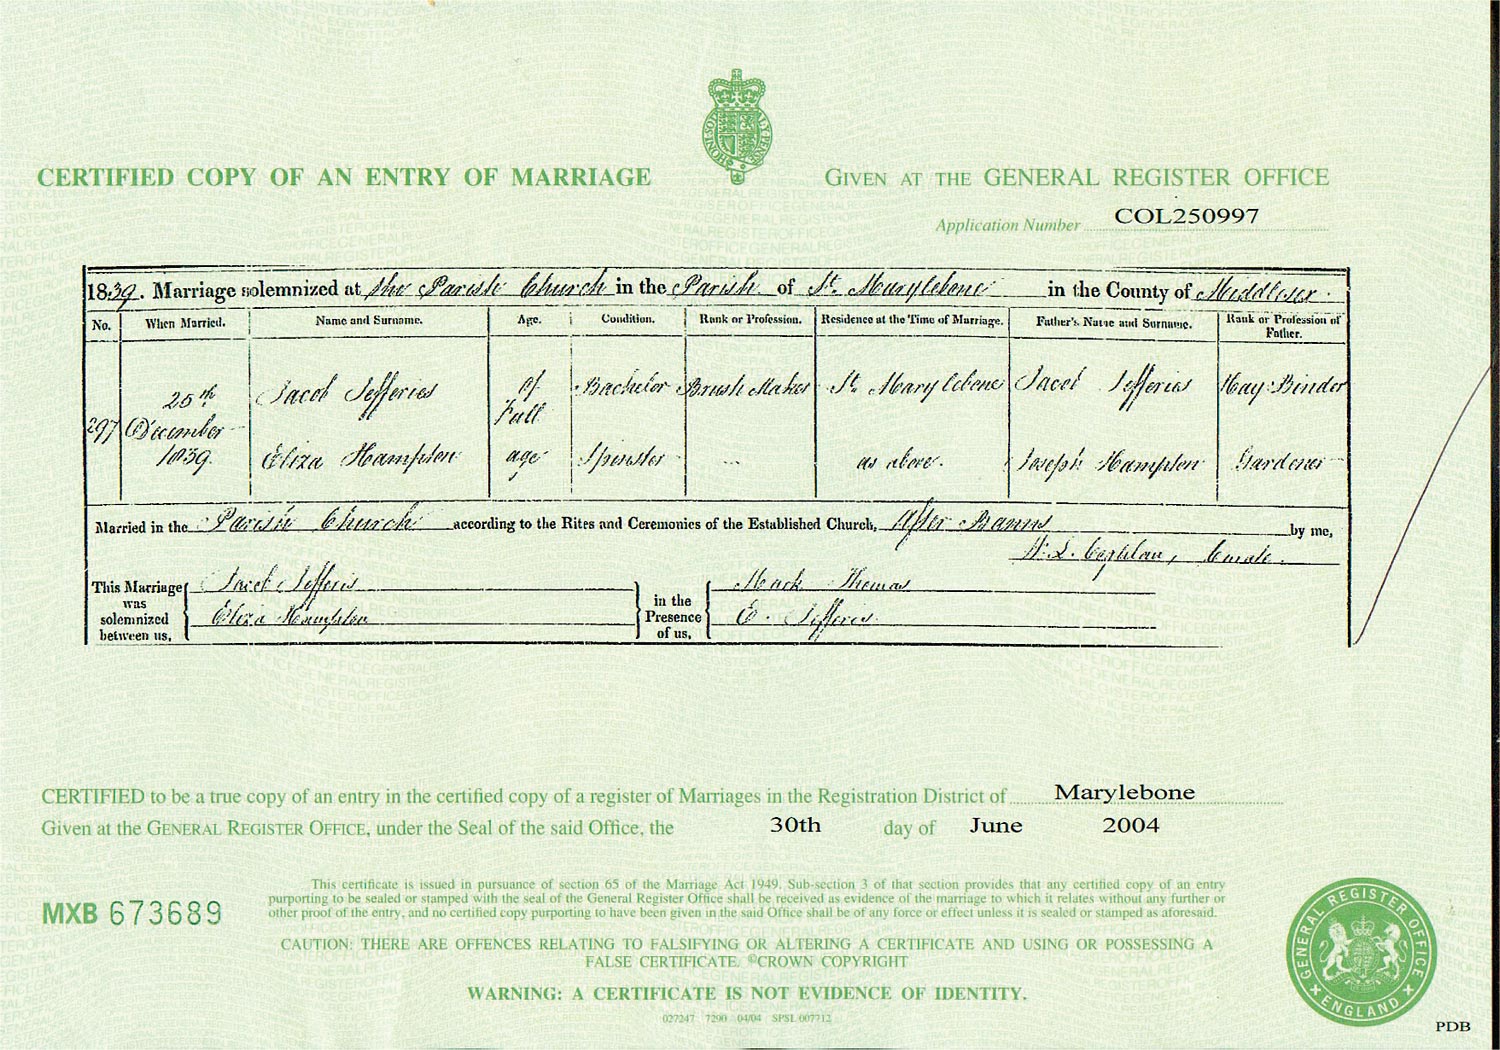 CERTIFIED COPY OF AN ENTRY OF MARRIAGE
GIVEN AT THE GENERAL REGISTER OFFICE
Application Number COL250997
1839. Marriage solemnized at the Parish Church in the Parish of St. Marylebone in the County of Middlesex.
No. When Married. Name and Surname. Age. Condition. Rank or Profession. Residence at the Time of Marriage. Father's Name and Surname. Rank or Profession of Father.
297 25th December 1839. Jacob Jefferies of Full Bachelor Brush Maker St. Marylebone Jacob Jefferies Hay Binder
Eliza Hampton age Spinster ... as above. Joseph Hampton Gardener
Married in the Parish Church according to the Rites and Ceremonies of the Established Church, after Banns by me,
Curate.
This Marriage was solemnized between us, Jacob Jefferis in the Presence of us, Mark Thomas
Eliza Hampton E. Jefferis
CERTIFIED to be a true copy of an entry in the certified copy of a register of Marriages in the Registration District of Marylebone
Given at the GENERAL REGISTER OFFICE, under the Seal of the said Office, the 30th day of June 2004
MXB 673689
This certificate is issued in pursuance of section 65 of the Marriage Act 1949. Sub-section 3 of that section provides that any certified copy of an entry
purporting to be sealed or stamped with the seal of the General Register Office shall be received as evidence of the marriage to which it relates without any further or
other proof of the entry, and no certified copy purporting to have been given in the said Office shall be of any force or effect unless it is sealed or stamped as aforesaid.
CAUTION: THERE ARE OFFENCES RELATING TO FALSIFYING OR ALTERING A CERTIFICATE AND USING OR POSSESSING A
FALSE CERTIFICATE. ©CROWN COPYRIGHT
WARNING: A CERTIFICATE IS NOT EVIDENCE OF IDENTITY.
027247 7290 04/04 SPSL 007712
GENERAL REGISTER OFFICE
ENGLAND
PDB